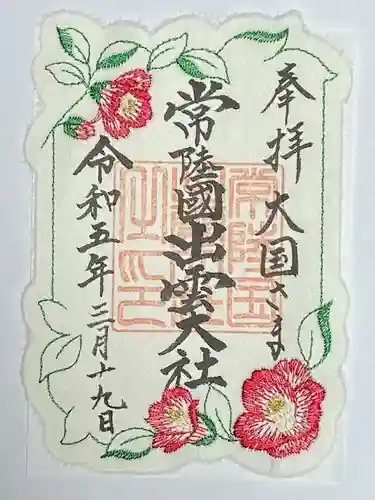 奉拝 大国さま
常陸國出雲大社
令和五年三月十九日